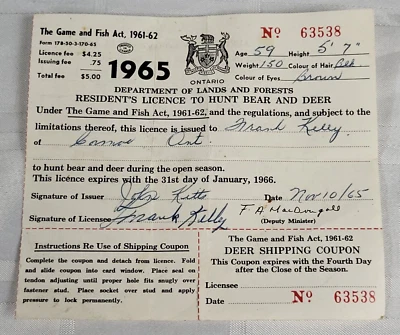 The Game and Fish Act, 1961-62
Form 178-50-3-170-65
Licence fee $4.25
Issuing fee .75
Total fee $5.00
1965
ONTARIO
Nº 63538
Age 59 Height 5' 7"
Weight 150 Colour of Hair Blk
Colour of Eyes Brown
DEPARTMENT OF LANDS AND FORESTS
RESIDENT'S LICENCE TO HUNT BEAR AND DEER
Under The Game and Fish Act, 1961-62, and the regulations, and subject to the
limitations thereof, this licence is issued to Frank Kelly
of Ont.
to hunt bear and deer during the open season.
This licence expires with the 31st day of January, 1966.
Signature of Issuer John Date Nov 10/65
Signature of Licensee Frank Kelly F A MacDougall
(Deputy Minister)
Instructions Re Use of Shipping Coupon
Complete the coupon and detach from licence. Fold
and slide coupon into card window. Place seal on
tendon adjusting until proper hole fits snugly over
fastener stud. Place socket over stud and apply
pressure to lock permanently.
The Game and Fish Act, 1961-62
DEER SHIPPING COUPON
This Coupon expires with the Fourth Day
after the Close of the Season.
Licensee
Date Nº 63538